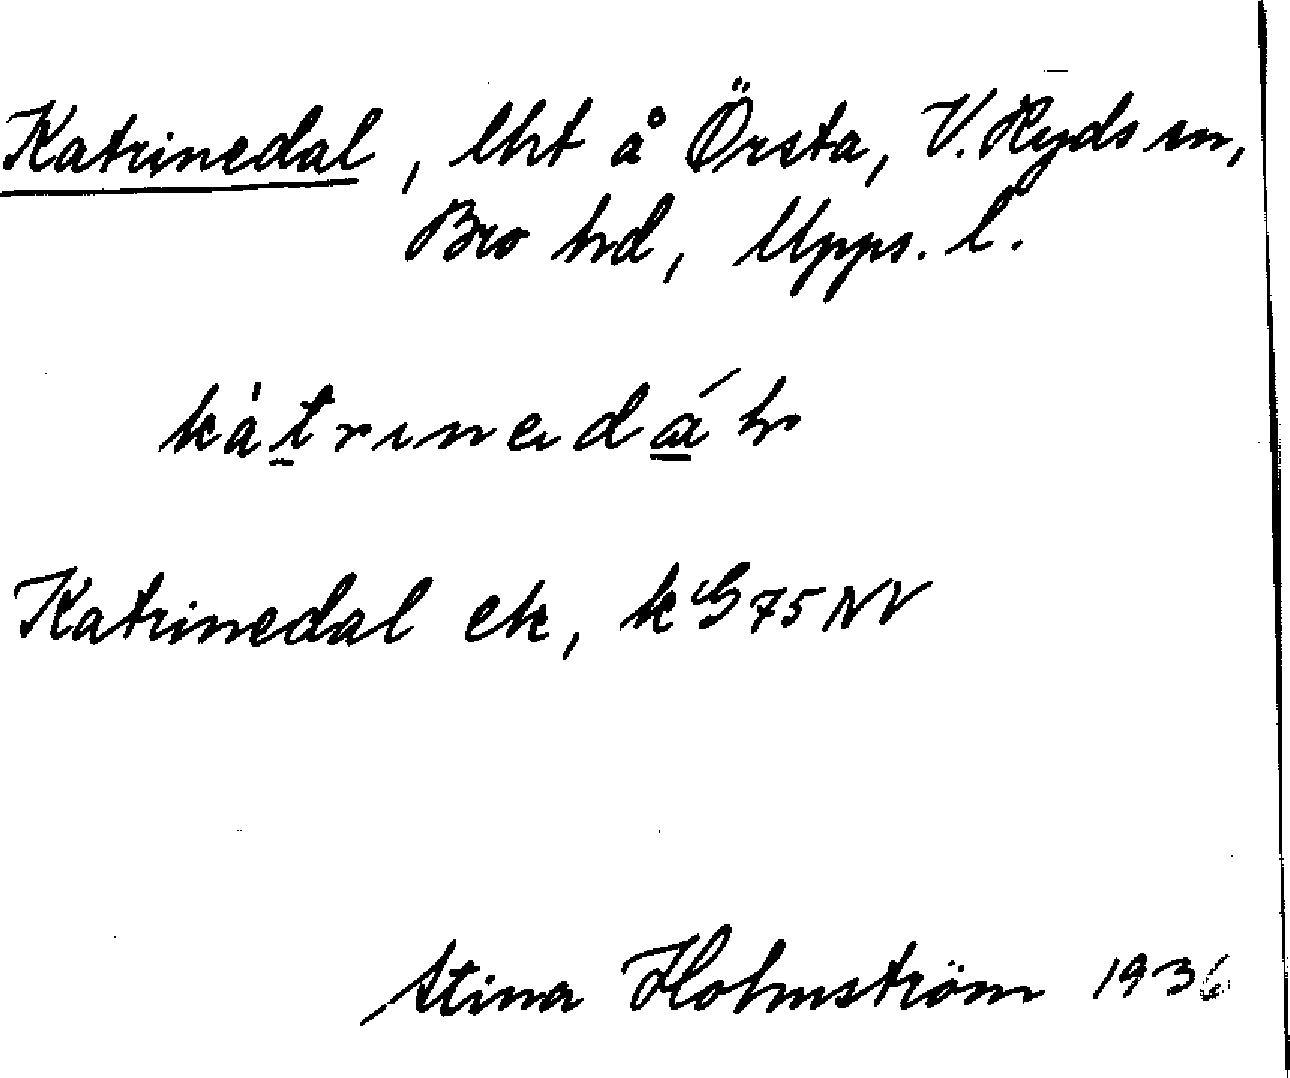 Katrinedal, lht å Örsta, V. Ryds sn,
Bro hd, Upps. l.
kàtrınedá
Katrinedal ek, k G 75 NV
Stina Holmström 1936